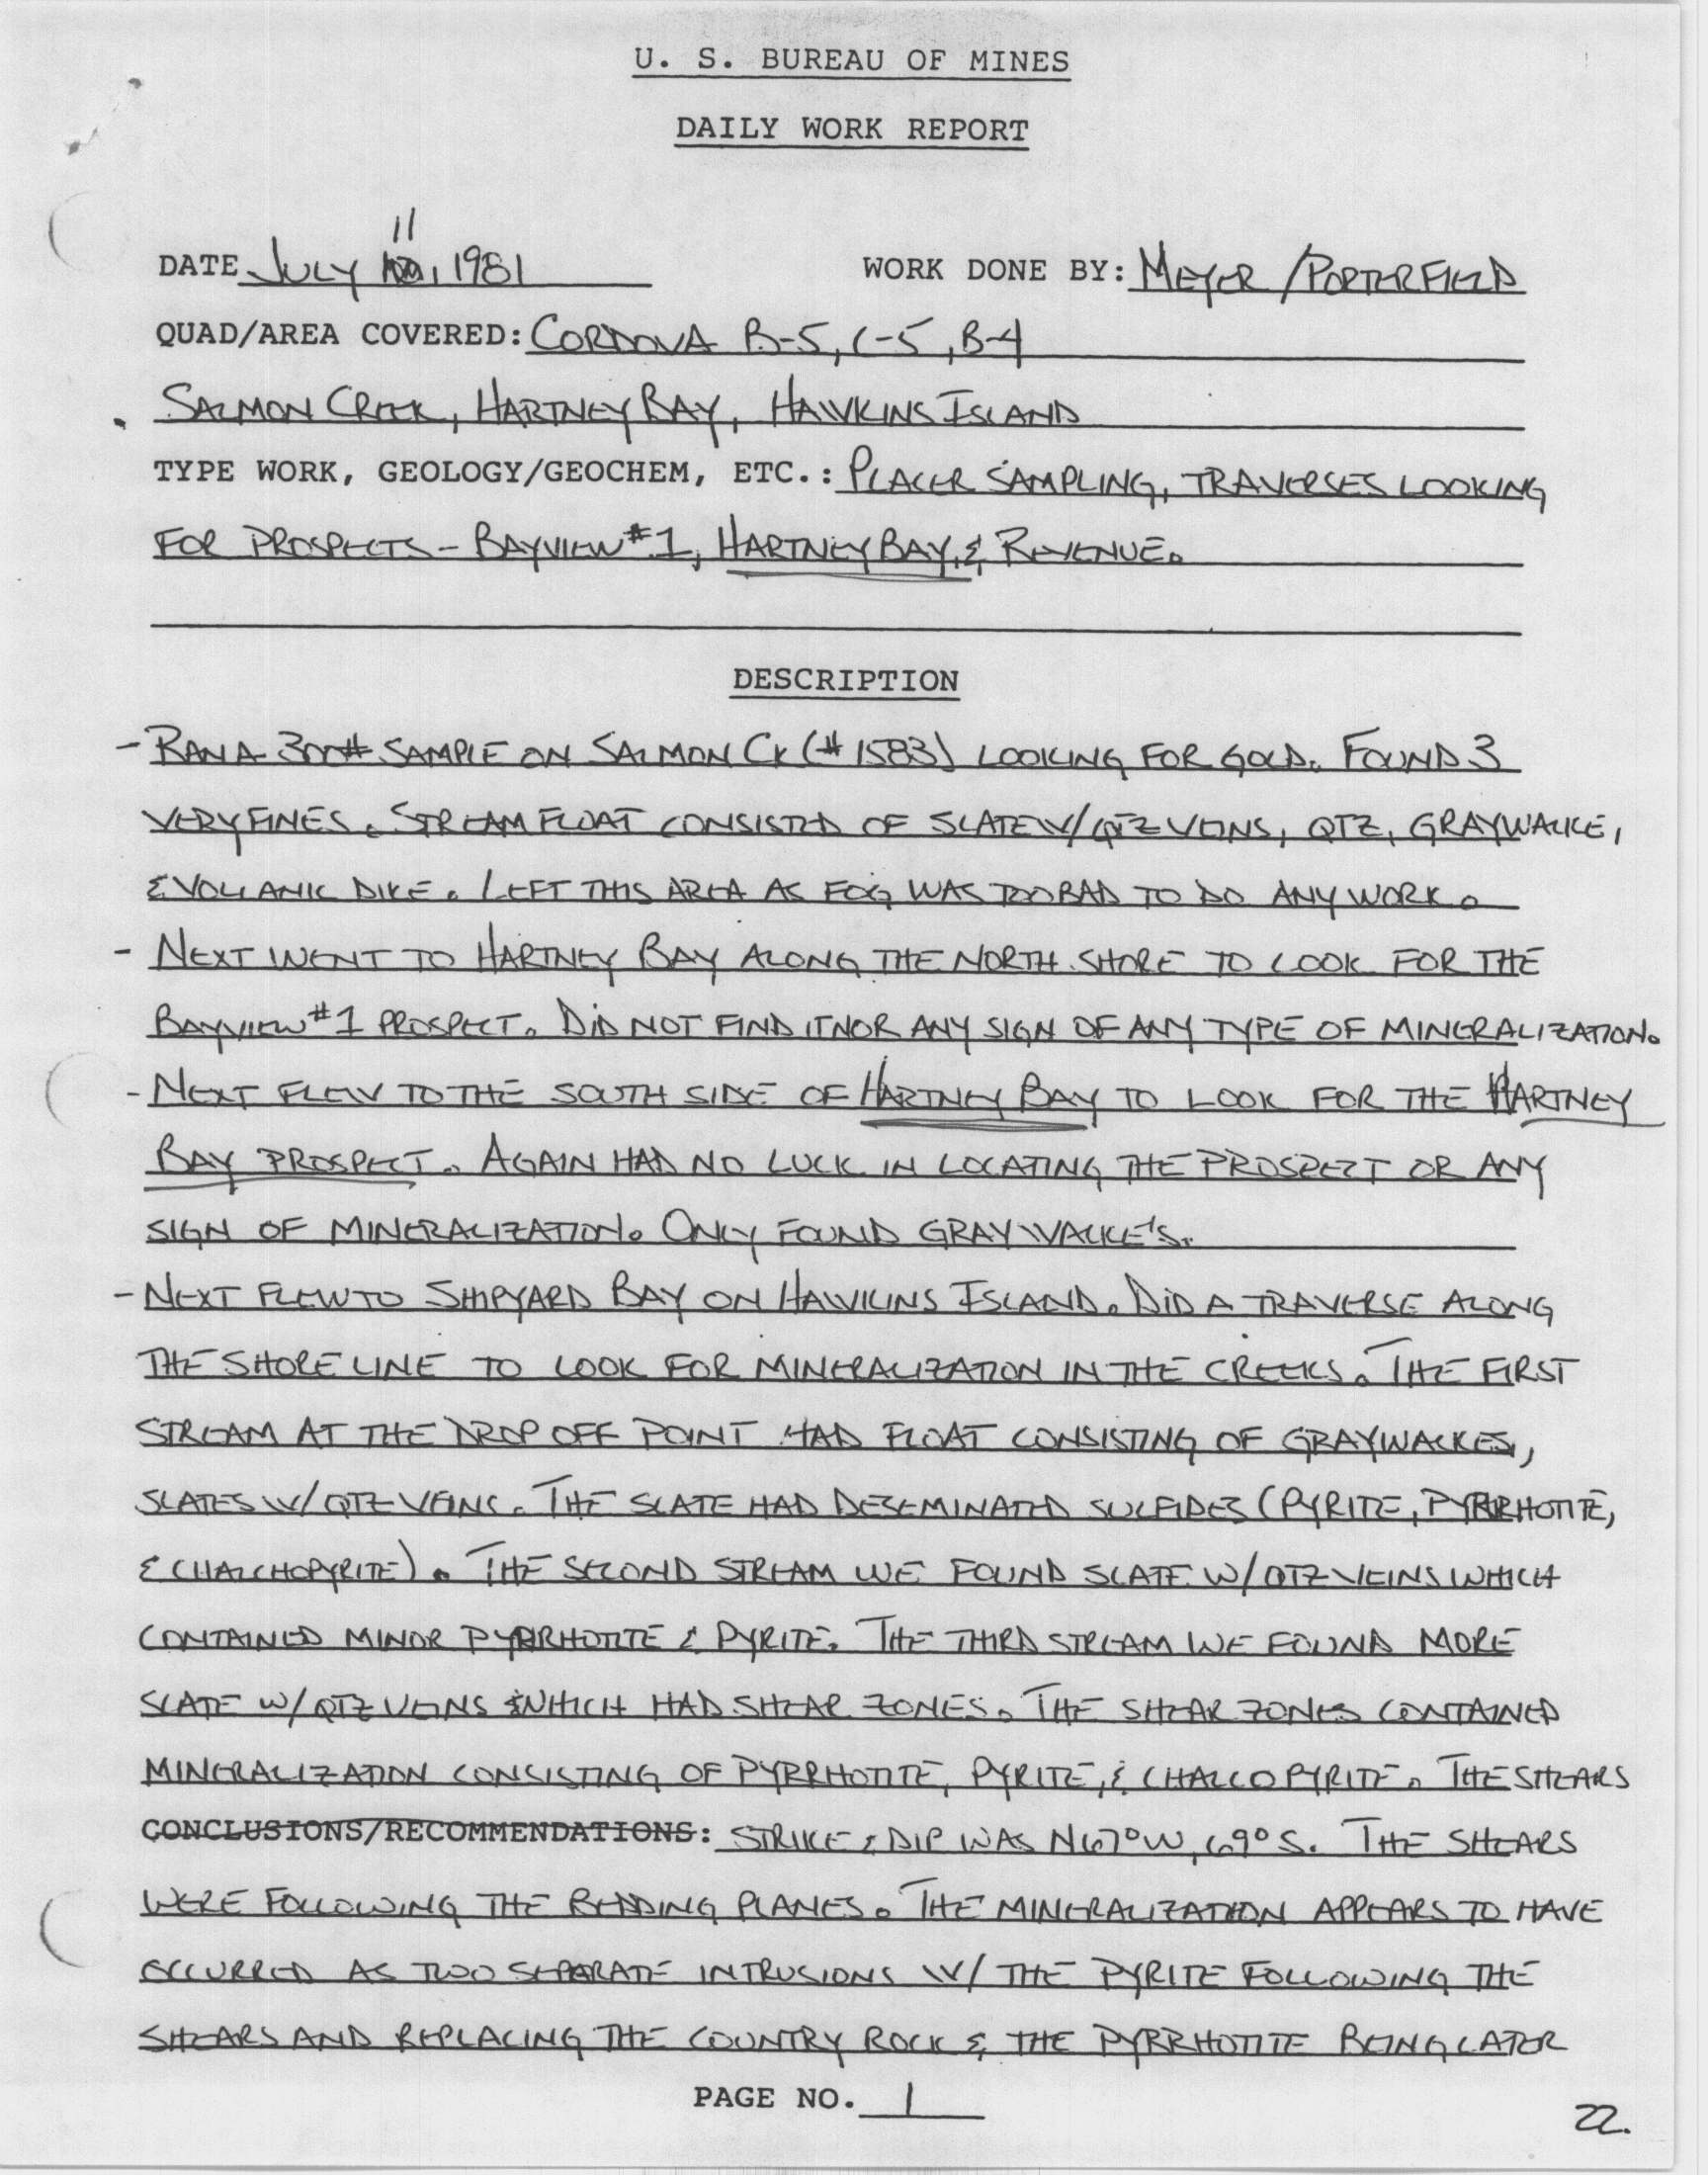 U. S. BUREAU OF MINES
DAILY WORK REPORT
11
DATE JULY , 1981 WORK DONE BY: MEYER / PORTERFIELD
QUAD/AREA COVERED: CORDOVA B-5, C-5, B-4
SALMON CREEK, HARTNEY BAY, HAWKINS ISLAND
TYPE WORK, GEOLOGY/GEOCHEM, ETC.: PLACER SAMPLING, TRAVERSES LOOKING
FOR PROSPECTS - BAYVIEW #1, HARTNEY BAY, & REVENUE.
DESCRIPTION
- RAN A 300# SAMPLE ON SALMON CK (# 1583) LOOKING FOR GOLD. FOUND 3
VERY FINES. STREAM FLOAT CONSISTED OF SLATE W/ QTZ VEINS, QTZ, GRAYWACKE,
& VOLCANIC DIKE. LEFT THIS AREA AS FOG WAS TOO BAD TO DO ANY WORK.
- NEXT WENT TO HARTNEY BAY ALONG THE NORTH SHORE TO LOOK FOR THE
BAYVIEW #1 PROSPECT. DID NOT FIND IT NOR ANY SIGN OF ANY TYPE OF MINERALIZATION.
- NEXT FLEW TO THE SOUTH SIDE OF HARTNEY BAY TO LOOK FOR THE HARTNEY
BAY PROSPECT. AGAIN HAD NO LUCK IN LOCATING THE PROSPECT OR ANY
SIGN OF MINERALIZATION. ONLY FOUND GRAYWACKE'S.
- NEXT FLEW TO SHIPYARD BAY ON HAWKINS ISLAND. DID A TRAVERSE ALONG
THE SHORE LINE TO LOOK FOR MINERALIZATION IN THE CREEKS. THE FIRST
STREAM AT THE DROP OFF POINT HAD FLOAT CONSISTING OF GRAYWACKES,
SLATES W/ QTZ VEINS. THE SLATE HAD DESEMINATED SULFIDES (PYRITE, PYRRHOTITE,
& CHALCHOPYRITE). THE SECOND STREAM WE FOUND SLATE W/ QTZ VEINS WHICH
CONTAINED MINOR PYRRHOTITE & PYRITE. THE THIRD STREAM WE FOUND MORE
SLATE W/ QTZ VEINS WHICH HAD SHEAR ZONES. THE SHEAR ZONES CONTAINED
MINERALIZATION CONSISTING OF PYRRHOTITE, PYRITE, & CHALCOPYRITE. THE SHEARS
CONCLUSIONS/RECOMMENDATIONS: STRIKE & DIP WAS N67°W, 69°S. THE SHEARS
WERE FOLLOWING THE BEDDING PLANES. THE MINERALIZATION APPEARS TO HAVE
OCCURRED AS TWO SEPARATE INTRUSIONS W/ THE PYRITE FOLLOWING THE
SHEARS AND REPLACING THE COUNTRY ROCK & THE PYRRHOTITE BEING LATER
PAGE NO. 1
22.